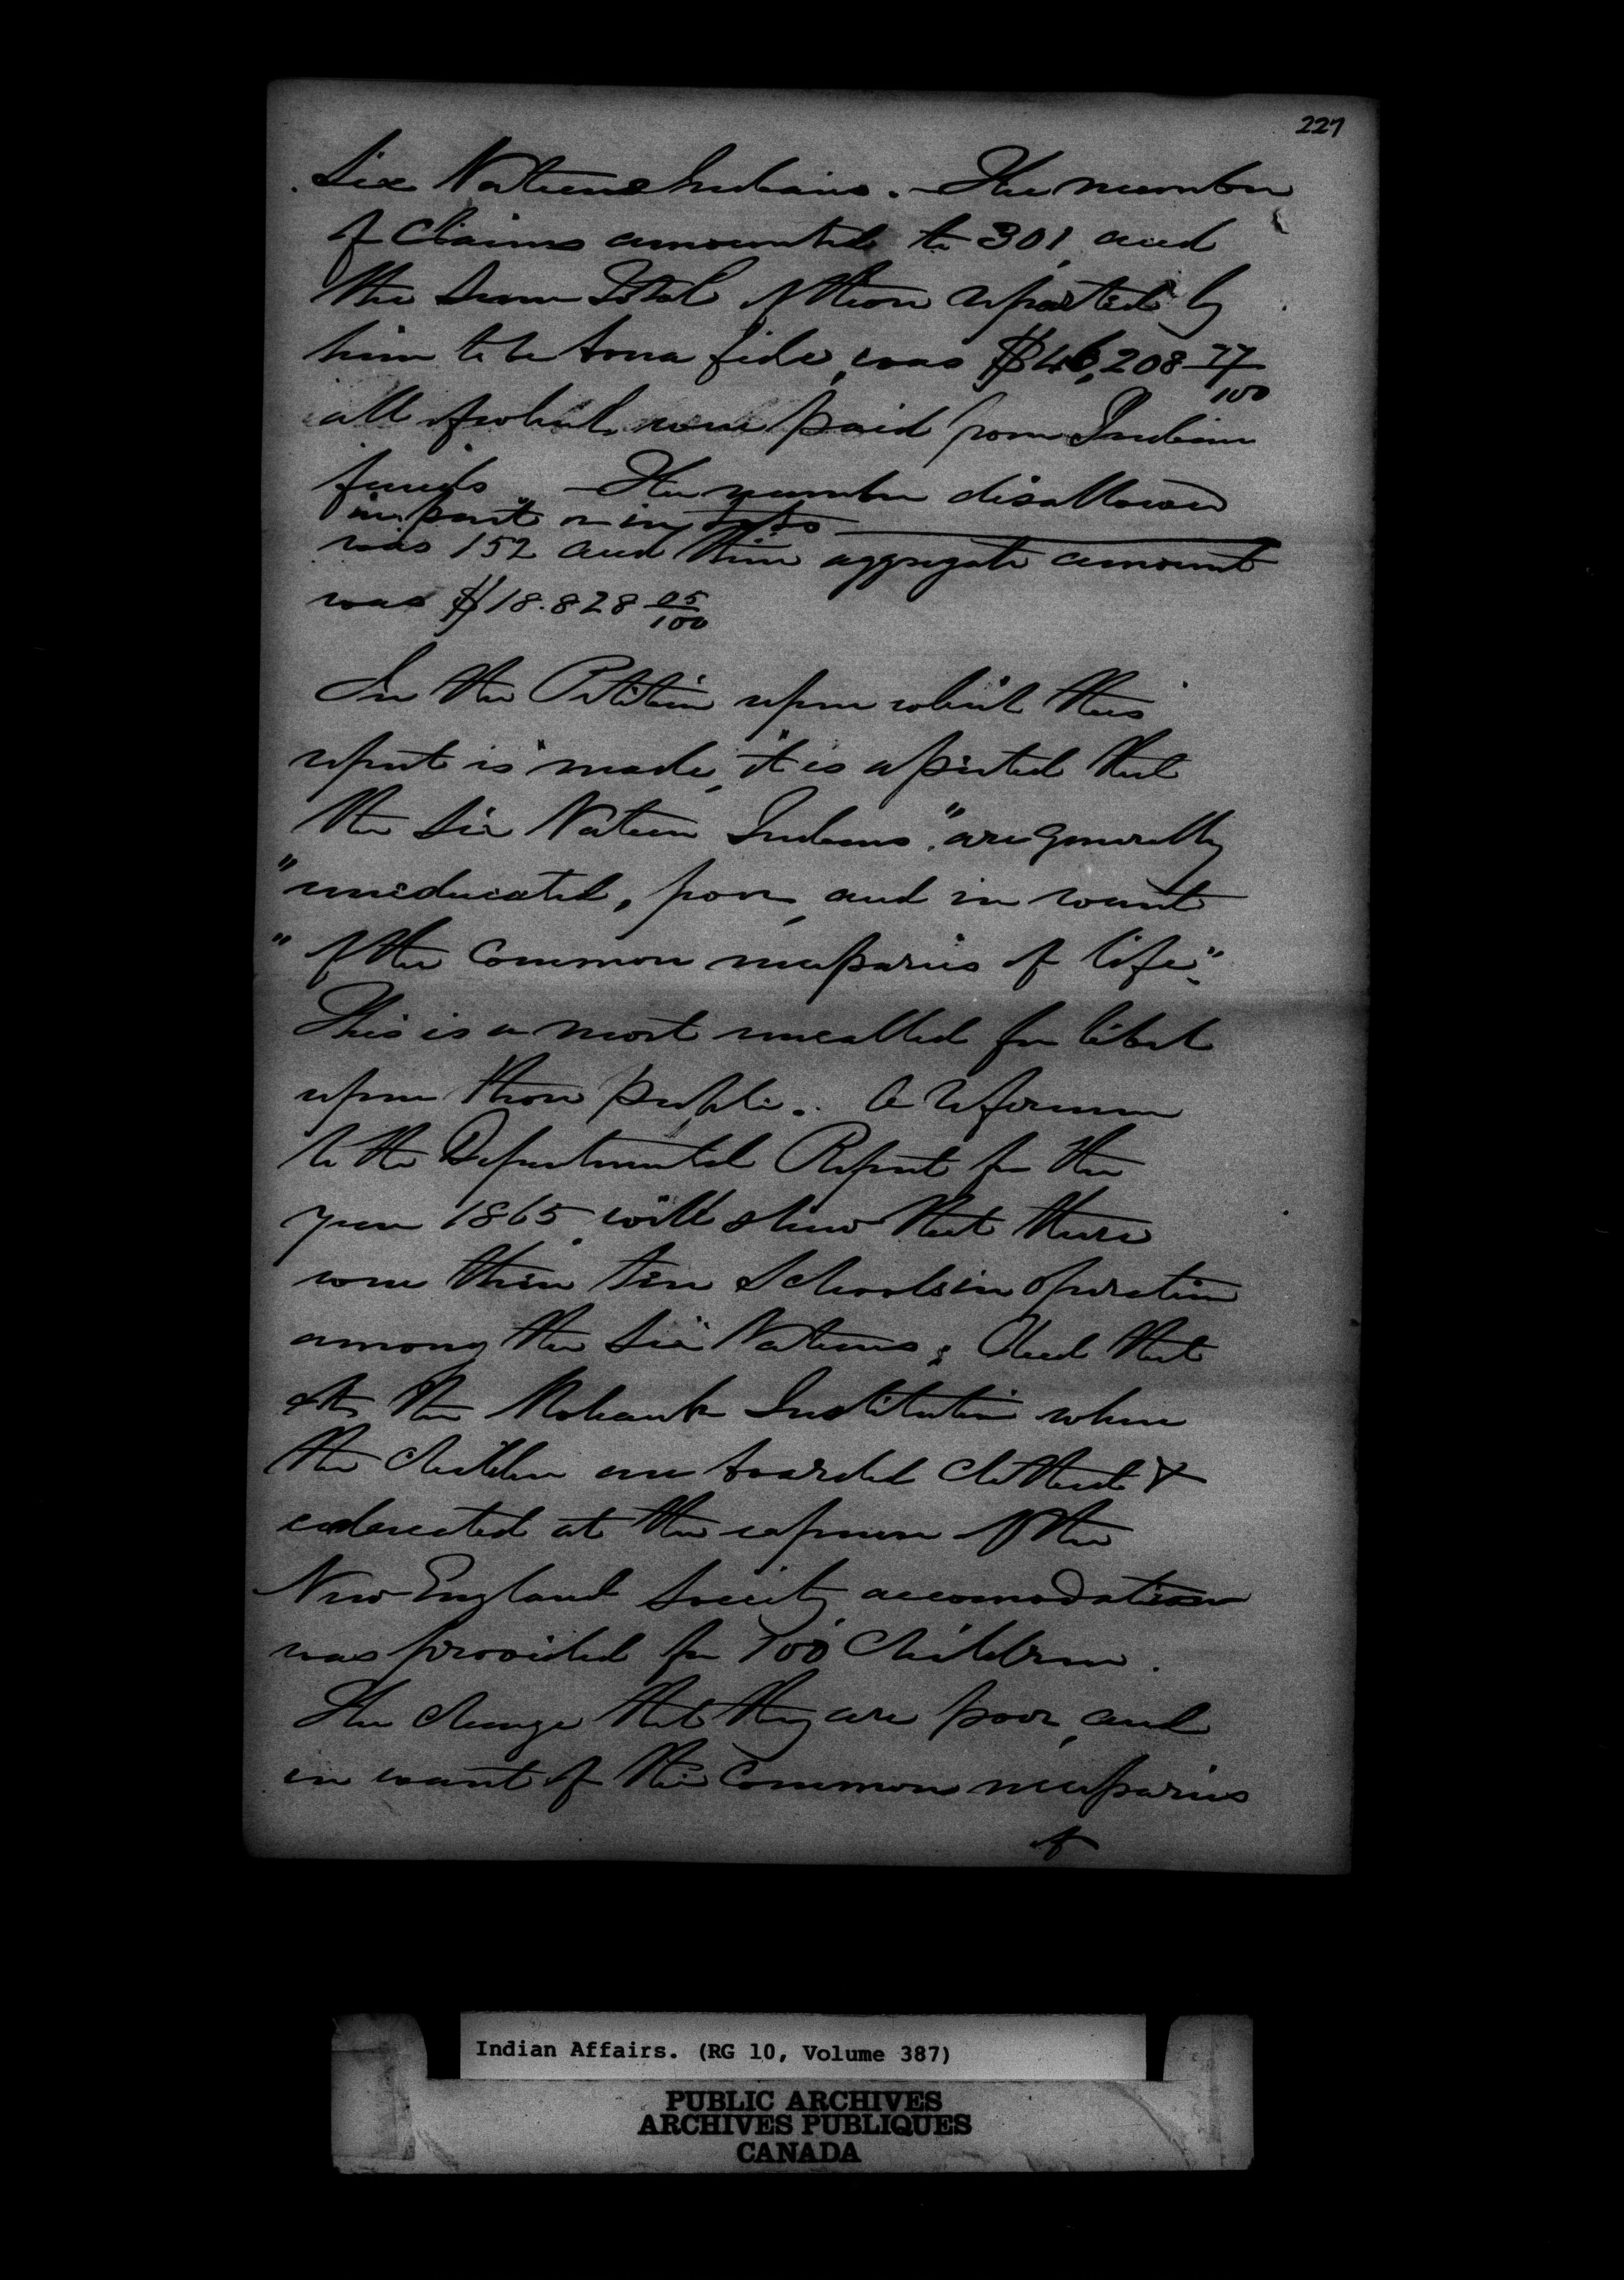 227
Six Nations Indians. - The number
of Claims amounted to 301, and
the Sum Total of those reported by
him to be bona fide, was $46,208 77/100
all of which were paid from Indian
funds - The number disallowed
in part or in toto
was 152 and their aggregate amount
was $18.828 05/100
In the Petition upon which this
report is made, it is asserted that
the Six Nation Indians "are generally
"uneducated, poor, and in want
"of the common necessaries of life".
This is a most uncalled for libel
upon those people. A reference
to the Departmental Report for the
year 1865 will show that there
were then ten Schools in operation
among the Six Nations; And that
at the Mohawk Institution where
the children are boarded clothed &
educated at the expense of the
New England Society accomodation
was provided for 100 Children.
The charge that they are poor, and
in want of the common necessaries
of
Indian Affairs. (RG 10, Volume 387)
PUBLIC ARCHIVES
ARCHIVES PUBLIQUES
CANADA